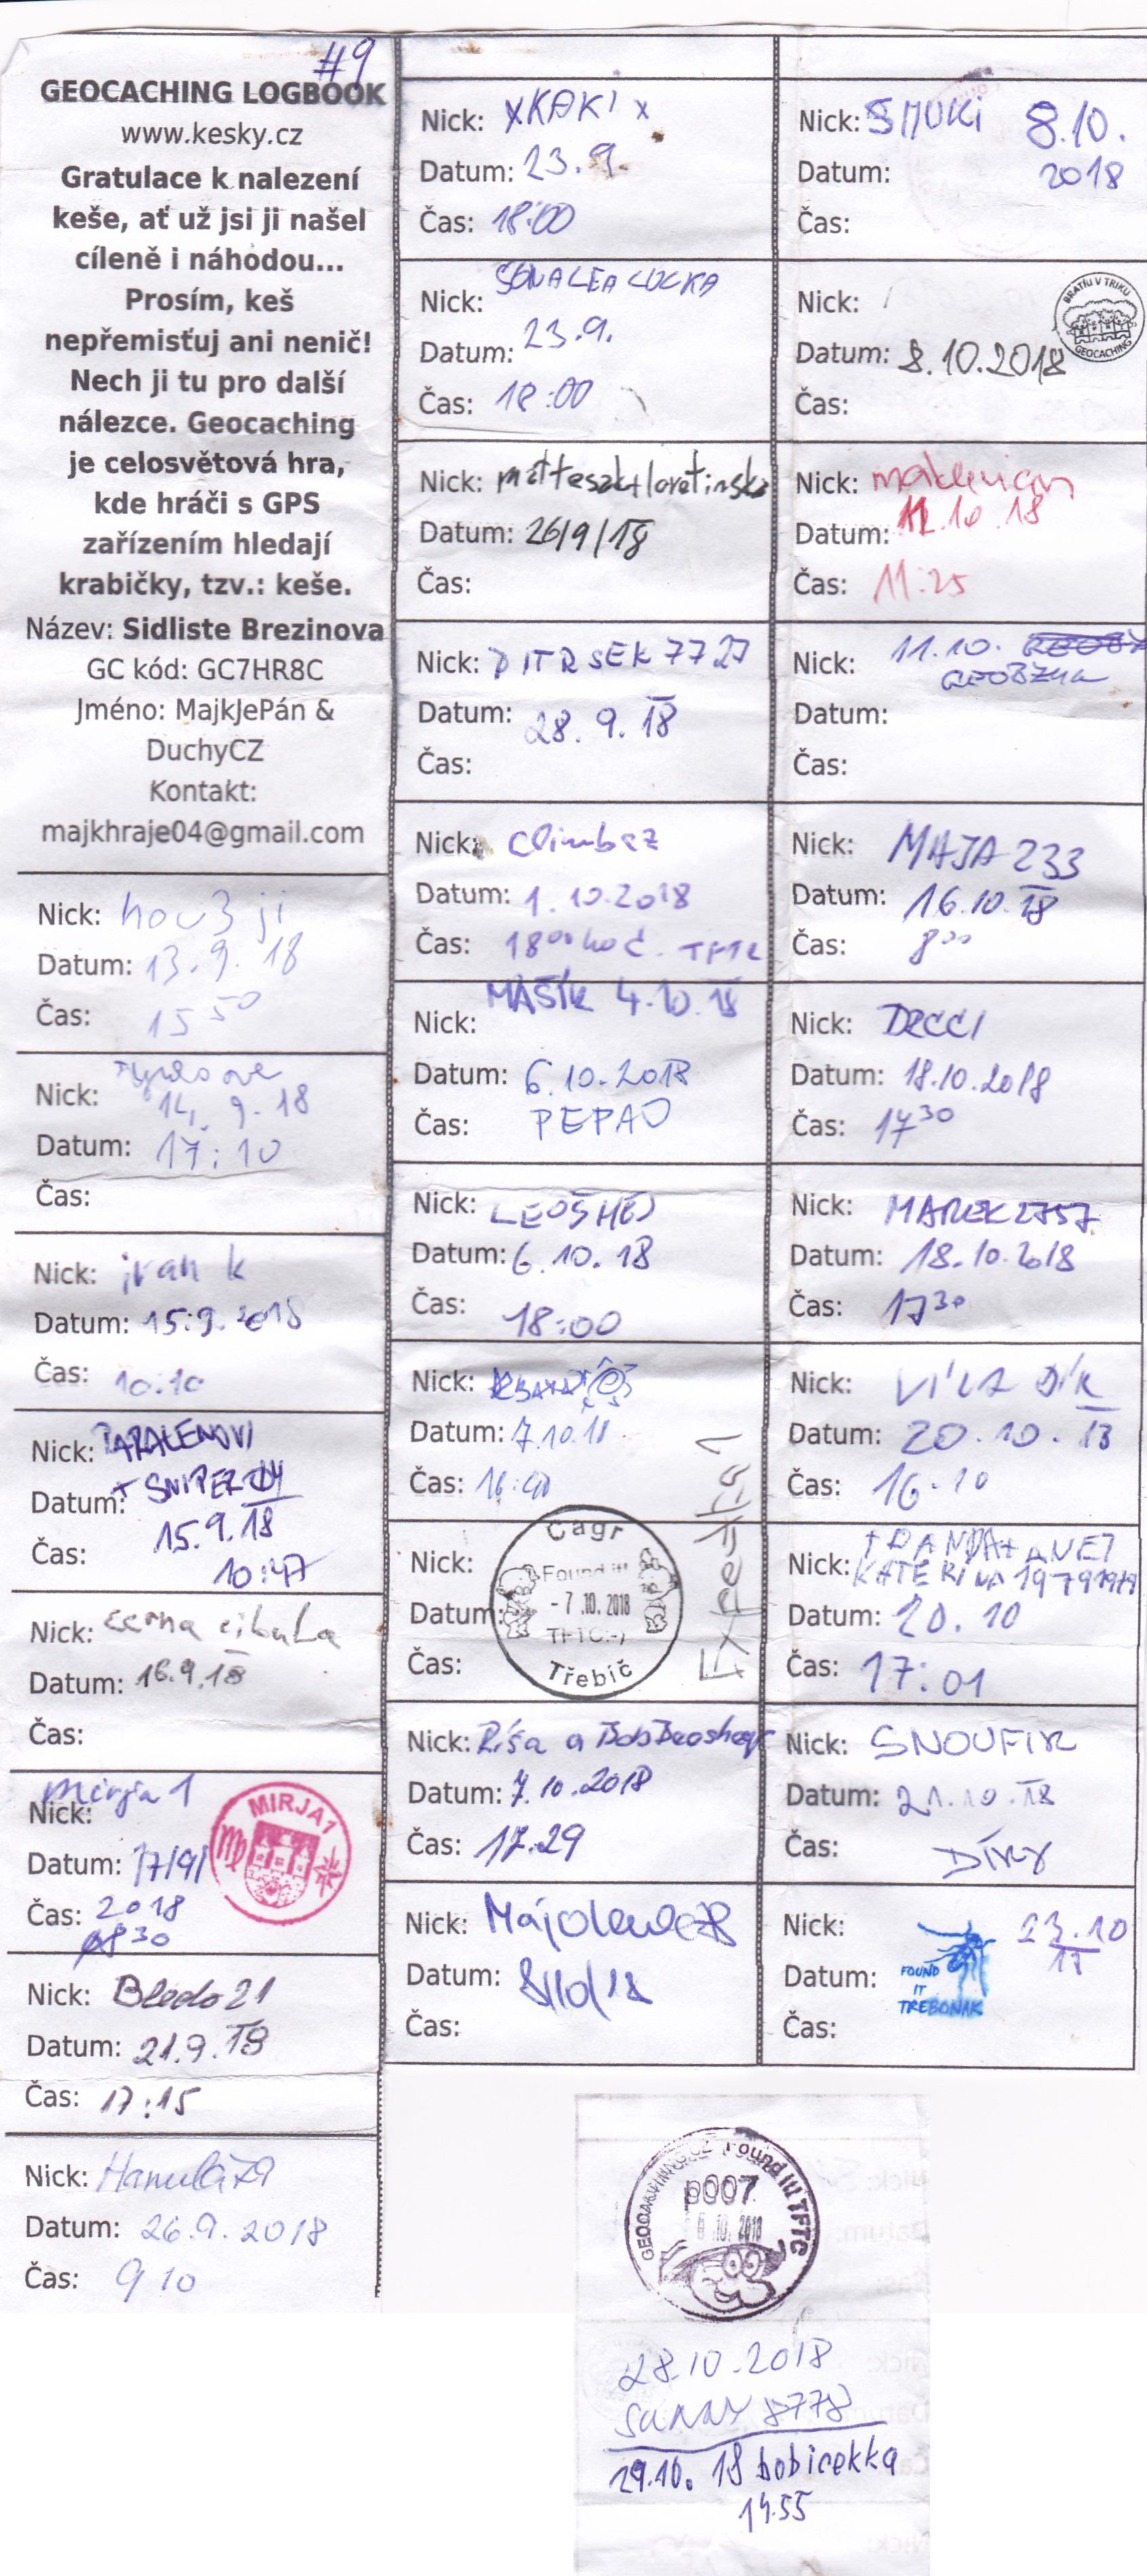 #9
GEOCACHING LOGBOOK
www.kesky.cz
Gratulace k nalezení
keše, ať už jsi ji našel
cíleně i náhodou...
Prosím, keš
nepřemisťuj ani nenič!
Nech ji tu pro další
nálezce. Geocaching
je celosvětová hra,
kde hráči s GPS
zařízením hledají
krabičky, tzv.: keše.
Název: Sidliste Brezinova
GC kód: GC7HR8C
Jméno: MajkJePán &
DuchyCZ
Kontakt:
majkhraje04@gmail.com
Nick: hou3ji
Datum: 13.9.18
Čas: 15 50
Nick:
14. 9. 18
Datum: 17:10
Čas:
Nick: ivan k
Datum: 15.9.2018
Čas: 10:10
Nick: PARALENOVI
Datum: + SNIPER
15.9.18
Čas: 10:47
Nick: cerna cibula
Datum: 16.9.18
Čas:
mirja1
Nick:
MIRJA1
Datum: 17/9/
Čas: 2018
30
Nick: Bledo21
Datum: 21.9.18
Čas: 17:15
Nick:
Datum: 26.9.2018
Čas: 9 10
Nick: xKAKIx
Datum: 23.9.
Čas: 18:00
Nick: LUCKA
Datum: 23.9.
Čas: 18:00
Nick:
Datum: 26/9/18
Čas:
Nick: DITRSEK7727
Datum: 28.9.18
Čas:
Nick: climbez
Datum: 1.10.2018
Čas: 18 00 TFTC
MAŠÍK 4.10.18
Nick:
Datum: 6.10.2018
Čas: PEPAO
Nick: LEOŠHB
Datum: 6.10.18
Čas: 18:00
Nick:
Datum: 7.10.18
Čas: 16:
Nick:
Cagr
Found it!
Datum: - 7.10.2018
TFTC:-)
Čas:
Třebíč
Nick: Ríša a
Datum: 7.10.2018
Čas: 17.29
Nick:
Datum: 8/10/18
Čas:
Nick: SMUKI 8.10.
Datum: 2018
Čas:
Nick:
BRATŘI V TRIKU
GEOCACHING
Datum: 8.10.2018
Čas:
Nick:
Datum: 11.10.18
Čas: 11:25
Nick: 11.10.
GEOBZUK
Datum:
Čas:
Nick: MAJA233
Datum: 16.10.18
Čas: 8 00
Nick: DRCCI
Datum: 18.10.2018
Čas: 17 30
Nick: MAREK2757
Datum: 18.10.2018
Čas: 17 30
Nick: DÍK
Datum: 20.10.18
Čas: 16.10
Nick:
KATERINA 1979
Datum: 20.10
Čas: 17:01
Nick: SNOUFIK
Datum: 21.10.18
Čas: DÍKY
Nick: 23.10
Datum: FOUND
IT
TREBONAK
Čas:
Found it! TFTC
p007
10.2018
28.10.2018
SUNNY 8778
29.10.18 bobicekka
14.55